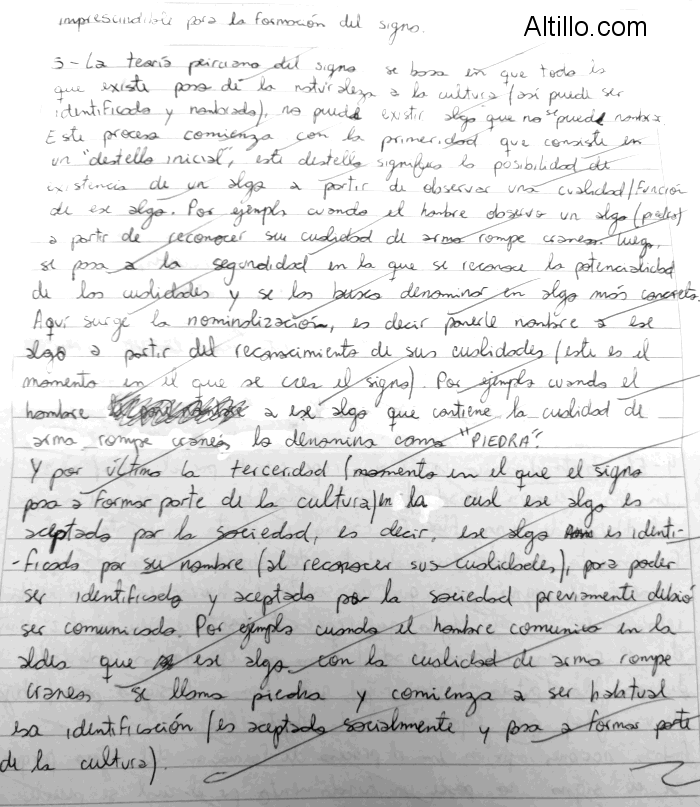 Altillo.com
imprescindible para la formación del signo.
3- La teoría peirciana del signo se basa en que todo lo
que existe pasa de la naturaleza a la cultura (así puede ser
identificado y nombrado), no puede existir algo que no se puede nombrar.
Este proceso comienza con la primeridad que consiste en
un "destello inicial", este destello significa la posibilidad de
existencia de un algo a partir de observar una cualidad/función
de ese algo. Por ejemplo cuando el hombre observa un algo (piedra)
a partir de reconocer su cualidad de arma rompe craneos. Luego,
se pasa a la segundidad en la que se reconoce la potencialidad
de las cualidades y se las busca denominar en algo más concreto.
Aquí surge la nominalización, es decir ponerle nombre a ese
algo a partir del reconocimiento de sus cualidades (este es el
momento en el que se crea el signo). Por ejemplo cuando el
hombre a ese algo que contiene la cualidad de
arma rompe craneos lo denomina como "PIEDRA".
Y por último la terceridad (momento en el que el signo
pasa a formar parte de la cultura) en la cual ese algo es
aceptado por la sociedad, es decir, ese algo es identi-
-ficado por su nombre (al reconocer sus cualidades), para poder
ser identificado y aceptado por la sociedad previamente debió
ser comunicado. Por ejemplo cuando el hombre comunica en la
aldea que ese algo con la cualidad de arma rompe
craneos se llama piedra y comienza a ser habitual
esa identificación (es aceptado socialmente y pasa a formar parte
de la cultura).